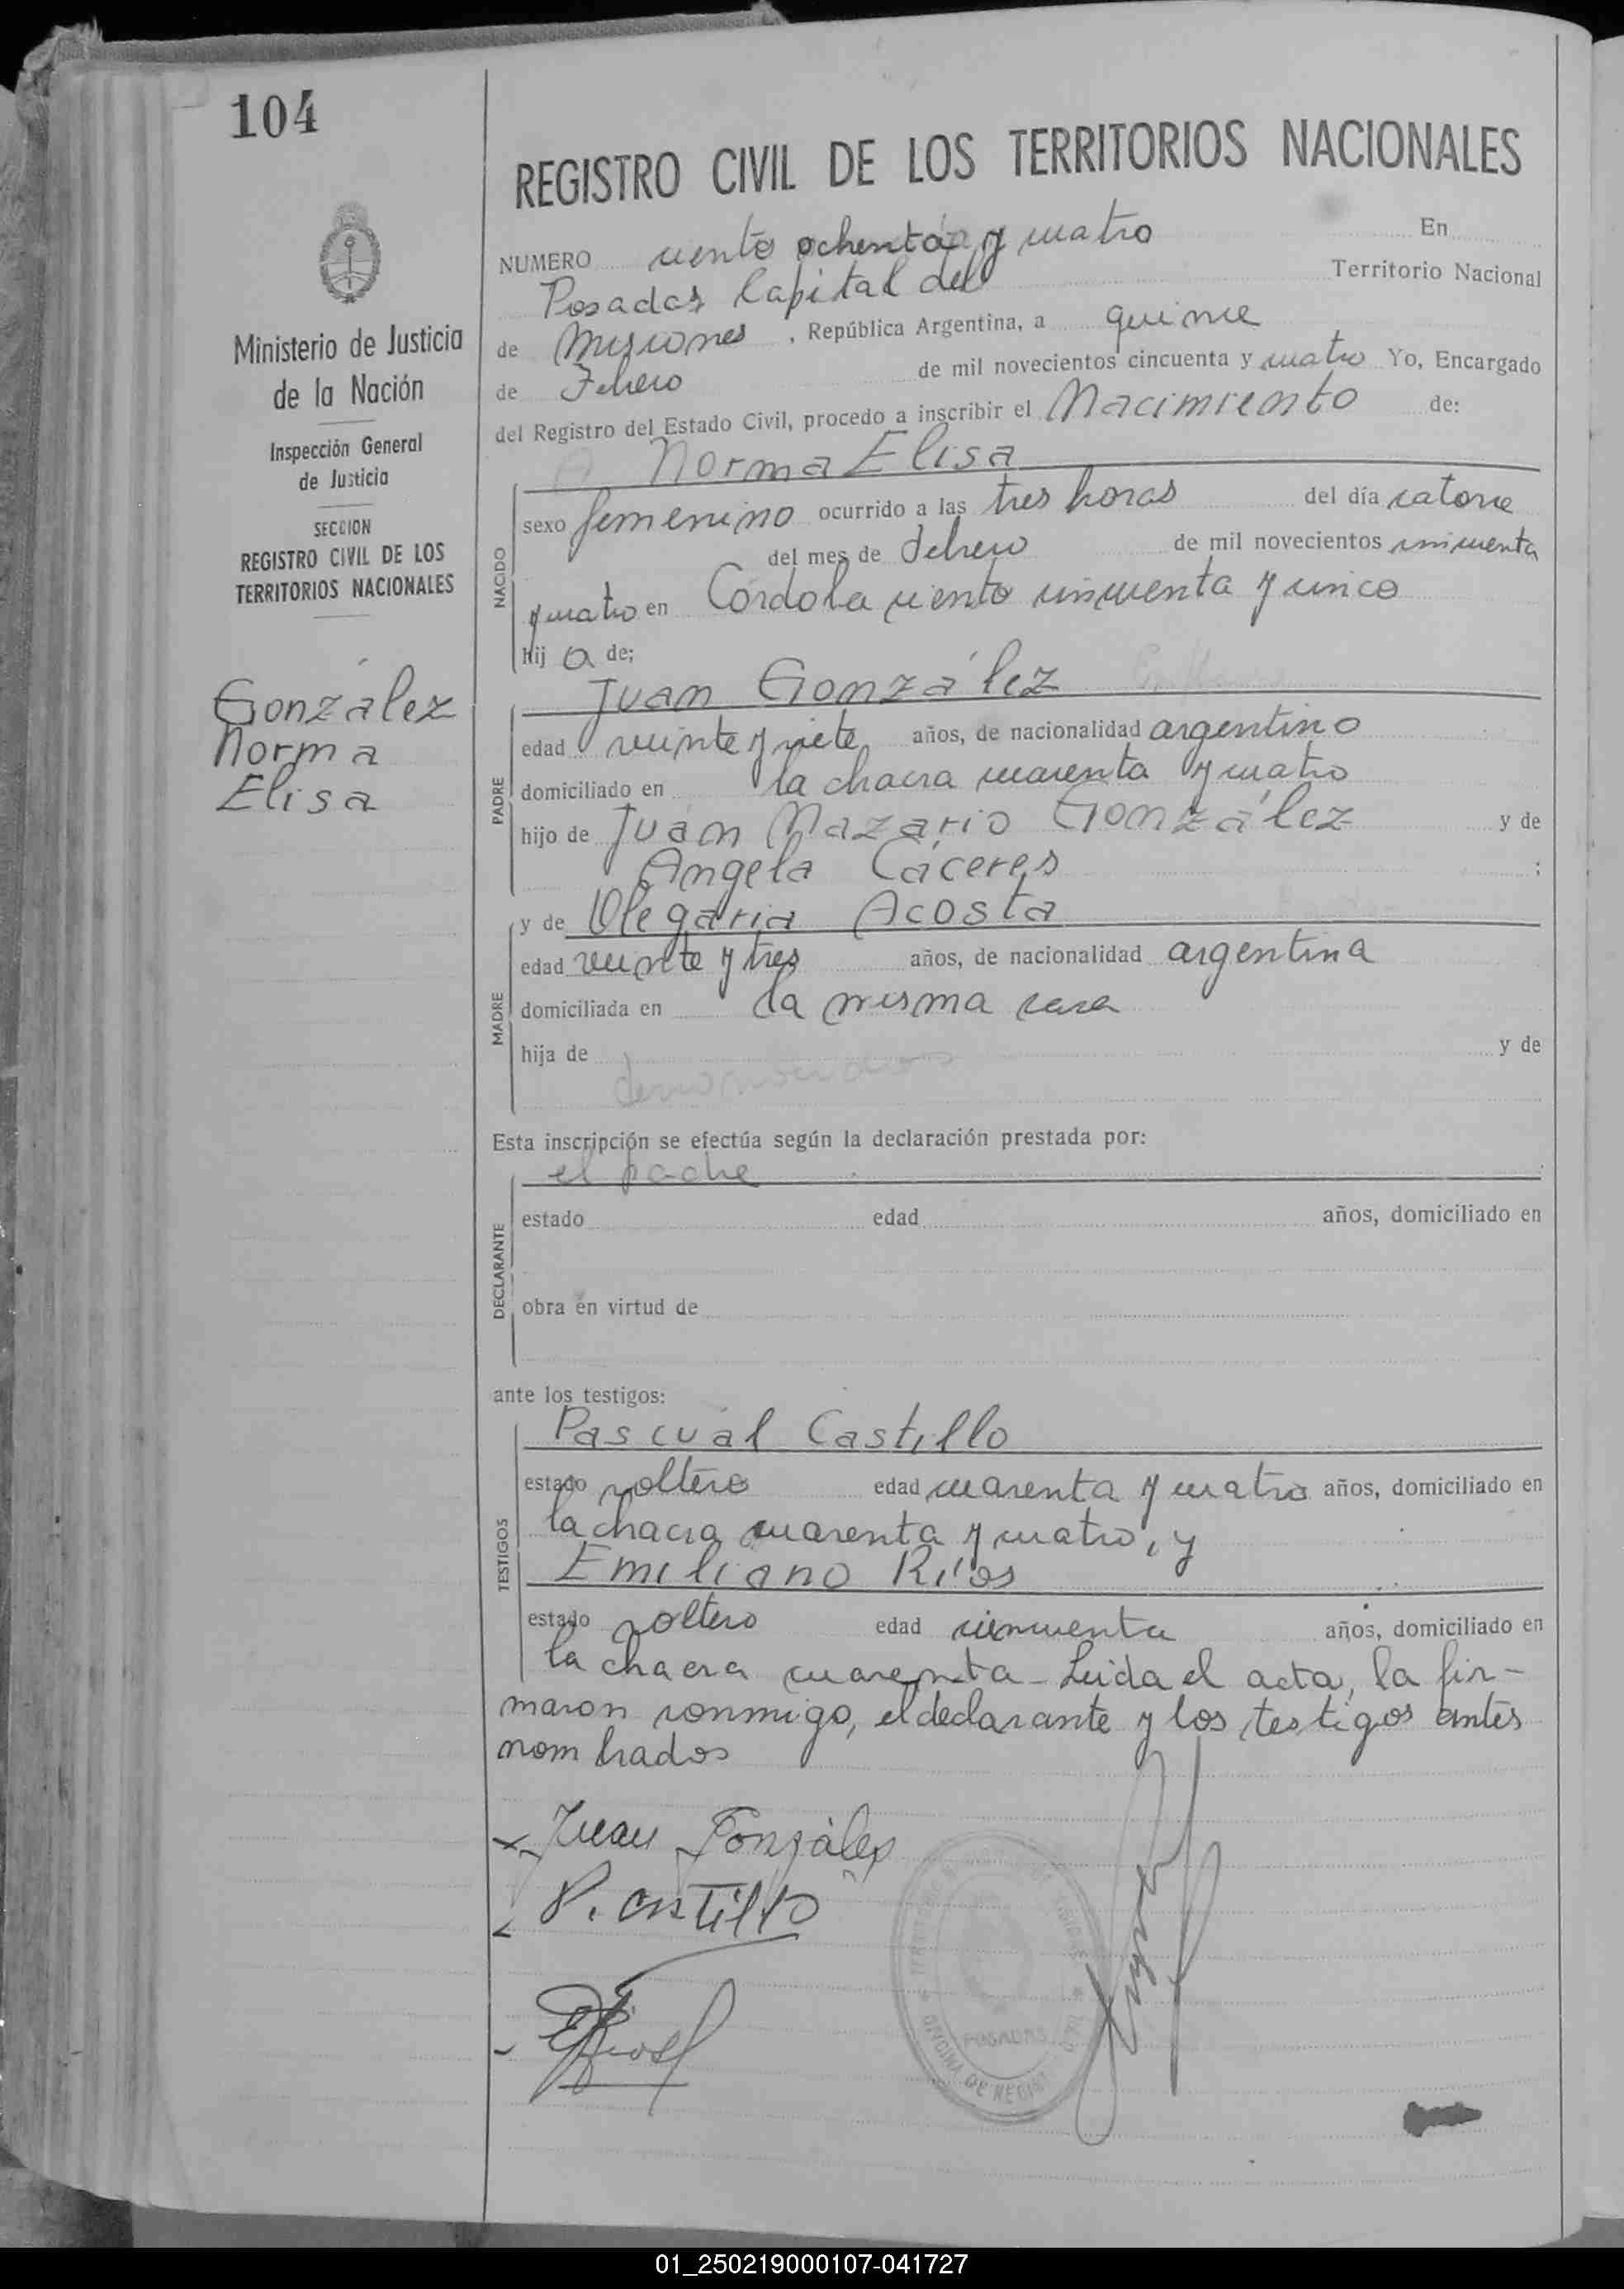 104
REGISTRO CIVIL DE LOS TERRITORIOS NACIONALES
NUMERO ciento ochenta y cuatro En
Posadas Capital del Territorio Nacional
de Misiones , República Argentina, a quince
de Febrero de mil novecientos cincuenta y cuatro Yo, Encargado
del Registro del Estado Civil, procedo a inscribir el Nacimiento de:
Norma Elisa
sexo femenino ocurrido a las tres horas del día catorce
del mes de Febrero de mil novecientos cincuenta
y cuatro en Córdoba ciento cincuenta y cinco
hij a de;
Juan González
edad veinte y siete años, de nacionalidad argentino
domiciliado en la chacra cuarenta y cuatro
hijo de Juan Nazario González y de
Angela Cáceres ;
y de Olegaria Acosta
edad veinte y tres años, de nacionalidad argentina
domiciliada en la misma casa
hija de y de
Esta inscripción se efectúa según la declaración prestada por:
el padre
estado edad años, domiciliado en
obra en virtud de
ante los testigos:
Pascual Castillo
estado soltero edad cuarenta y cuatro años, domiciliado en
la chacra cuarenta y cuatro, y
Emiliano Ríos
estado soltero edad cincuenta años, domiciliado en
la chacra cuarenta - Leida el acta, la fir-
maron conmigo, el declarante y los testigos antes
nombrados
Juan Gonzáles
P. Castillo
E Rios
NACIDO
PADRE
MADRE
DECLARANTE
TESTIGOS
Ministerio de Justicia
de la Nación
Inspección General
de Justicia
SECCION
REGISTRO CIVIL DE LOS
TERRITORIOS NACIONALES
González
Norma
Elisa
POSADAS
OFICINA DE REGIST
01_250219000107-041727